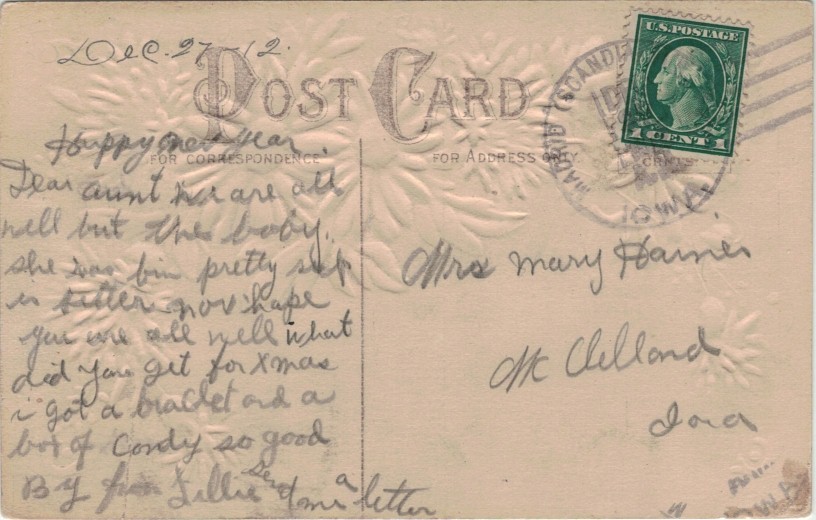 Dec. 27 - 12.
POST CARD
Happy new year
FOR CORRESPONDENCE
FOR ADDRESS ONLY
Dear aunt we are all
well but the baby.
she has bin pretty sick
is bitter now hope
you are all well what
did you get for Xmas
i got a braclet and a
box of Candy so good
By from Lillie Send me a letter
Mrs Mary Haines
Mc Clelland
Iowa
U.S. POSTAGE
1 CENT 1
MADRID
IOWA